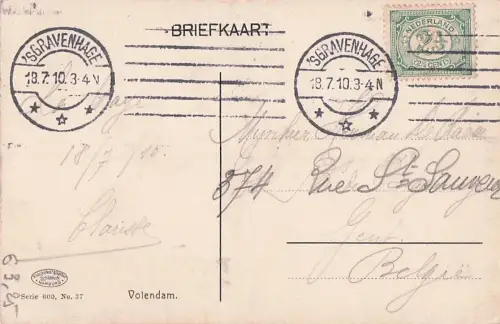 BRIEFKAART
'SGRAVENHAGE
18.7.10.3-4N
'SGRAVENHAGE
18.7.10.3-4N
NEDERLAND
2½
(2½ CENT)
La Haye
18/7/10
Clarisse
374 Rue St= Sauveur
Gent
Belgïe
Serie 600, No. 37
Volendam.